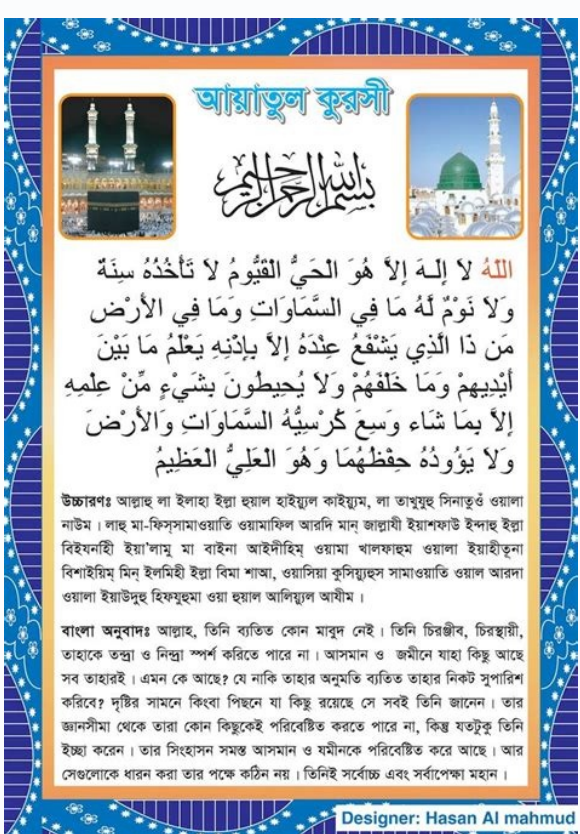 আয়াতুল কুরসী
بسم الله الرحمن الرحيم
اللّهُ لاَ إِلَـهَ إِلاَّ هُوَ الْحَيُّ الْقَيُّومُ لاَ تَأْخُذُهُ سِنَةٌ
وَلاَ نَوْمٌ لَّهُ مَا فِي السَّمَاوَاتِ وَمَا فِي الأَرْضِ
مَن ذَا الَّذِي يَشْفَعُ عِنْدَهُ إِلاَّ بِإِذْنِهِ يَعْلَمُ مَا بَيْنَ
أَيْدِيهِمْ وَمَا خَلْفَهُمْ وَلاَ يُحِيطُونَ بِشَيْءٍ مِّنْ عِلْمِهِ
إِلاَّ بِمَا شَاء وَسِعَ كُرْسِيُّهُ السَّمَاوَاتِ وَالأَرْضَ
وَلاَ يَؤُودُهُ حِفْظُهُمَا وَهُوَ الْعَلِيُّ الْعَظِيمُ
উচ্চারণঃ আল্লাহু লা ইলাহা ইল্লা হুয়াল হাইয়্যুল কাইয়্যুম, লা তাখুযুহু সিনাতুওঁ ওয়ালা
নাউম । লাহু মা-ফিস্সামাওয়াতি ওয়ামাফিল আরদি মান্ জাল্লাযী ইয়াশফাউ ইন্দাহু ইল্লা
বিইযনিহী ইয়া'লামু মা বাইনা আইদীহিম্ ওয়ামা খালফাহুম ওয়ালা ইয়াহীতূনা
বিশাইয়িম্ মিন্ ইলমিহী ইল্লা বিমা শাআ, ওয়াসিয়া কুসিয়্যুহুস সামাওয়াতি ওয়াল আরদা
ওয়ালা ইয়াউদুহু হিফযুহুমা ওয়া হুয়াল আলিয়্যুল আযীম ।
বাংলা অনুবাদঃ আল্লাহ, তিনি ব্যতিত কোন মাবুদ নেই । তিনি চিরঞ্জীব, চিরস্থায়ী,
তাহাকে তন্দ্রা ও নিন্দ্রা স্পর্শ করিতে পারে না । আসমান ও জমীনে যাহা কিছু আছে
সব তাহারই । এমন কে আছে? যে নাকি তাহার অনুমতি ব্যতিত তাহার নিকট সুপারিশ
করিবে? দৃষ্টির সামনে কিংবা পিছনে যা কিছু রয়েছে সে সবই তিনি জানেন । তার
জ্ঞানসীমা থেকে তারা কোন কিছুকেই পরিবেষ্টিত করতে পারে না, কিন্তু যতটুকু তিনি
ইচ্ছা করেন । তার সিংহাসন সমস্ত আসমান ও যমীনকে পরিবেষ্টিত করে আছে । আর
সেগুলোকে ধারন করা তার পক্ষে কঠিন নয় । তিনিই সর্বোচ্চ এবং সর্বাপেক্ষা মহান ।
Designer: Hasan Al mahmud